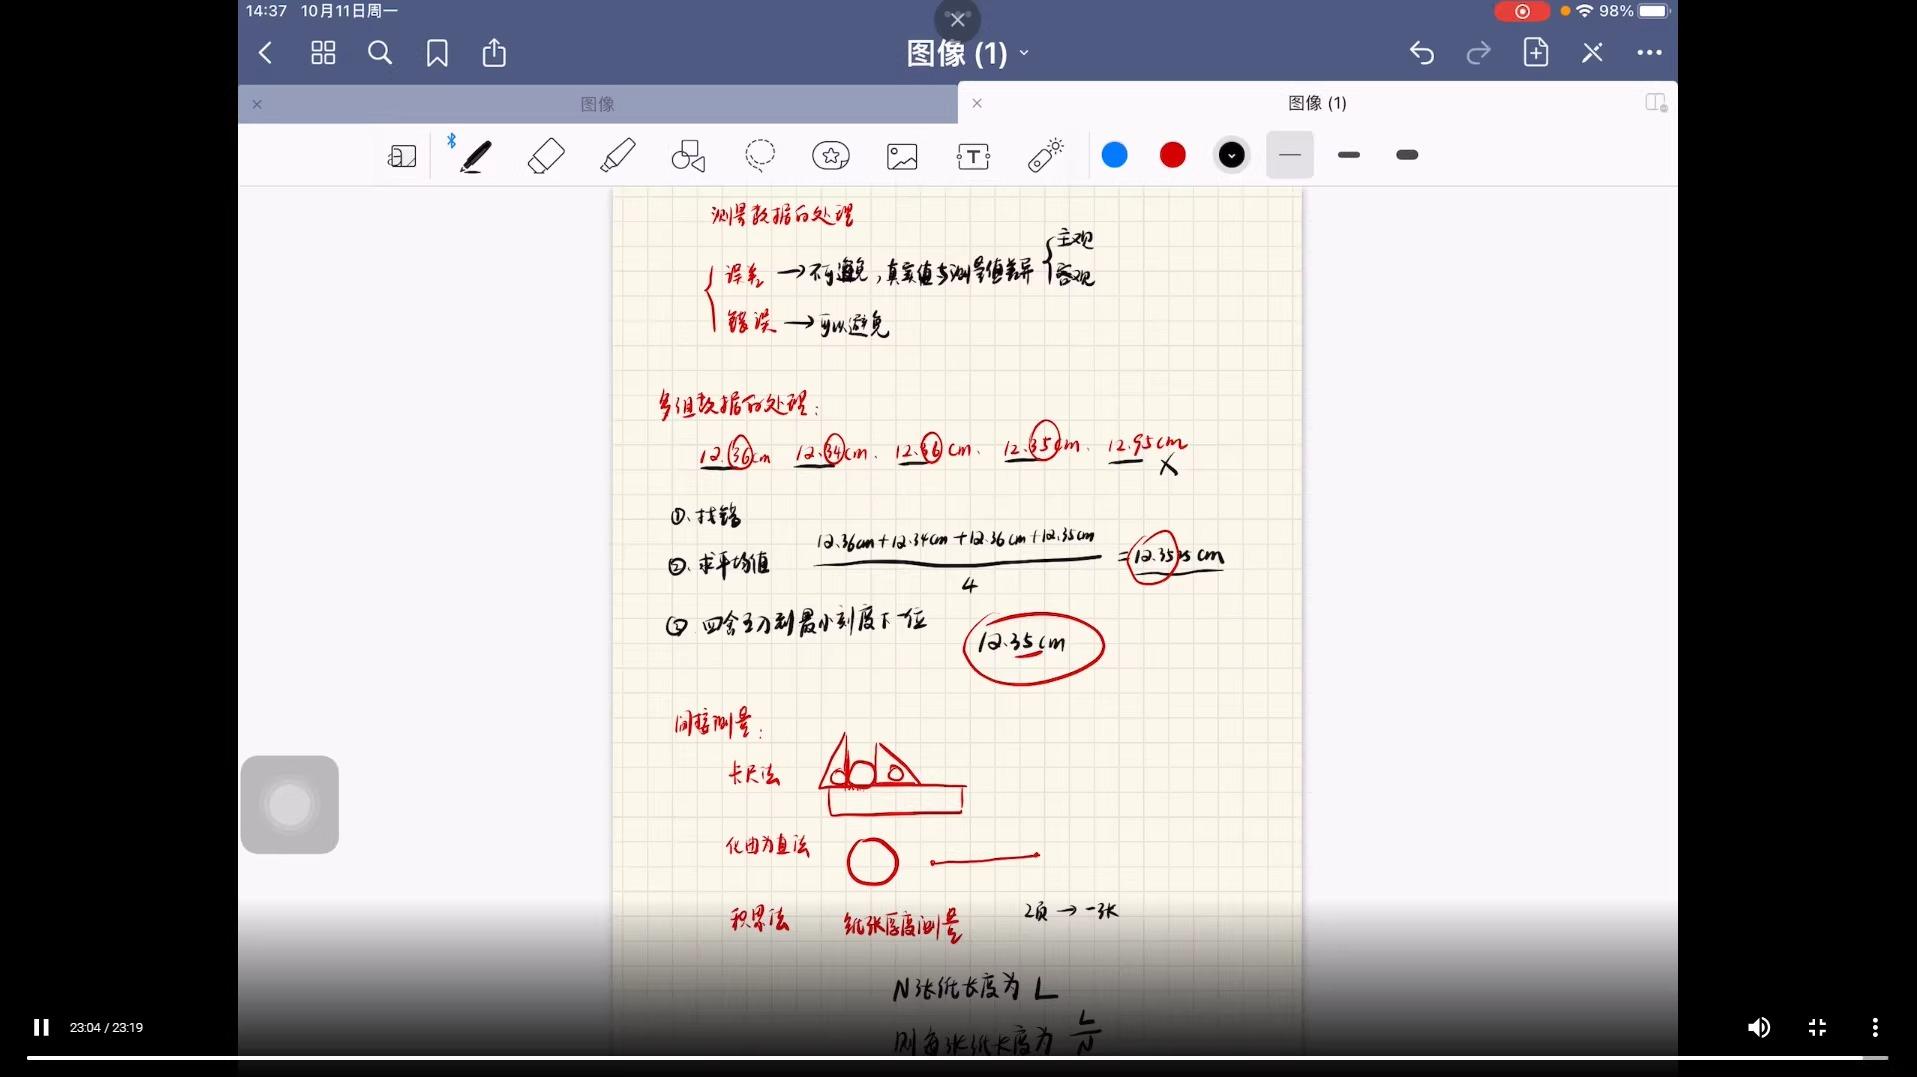 14:37 10月11日周一
98%
图像 (1)
图像
图像 (1)
测量数据的处理
误差 → 不可避免，真实值与测量值差异 { 主观
客观
错误 → 可以避免
多组数据的处理：
12.36cm 12.34cm、12.36cm、12.35cm、12.95cm
×
①、找错
②、求平均值 12.36cm+12.34cm+12.36cm+12.35cm
4
=12.3525cm
③ 四舍五入到最小刻度下一位 12.35cm
间接测量：
卡尺法
化曲为直法
积累法 纸张厚度测量 2页 → 一张
N张纸长度为 L
则每张纸长度为 L/N
23:04 / 23:19